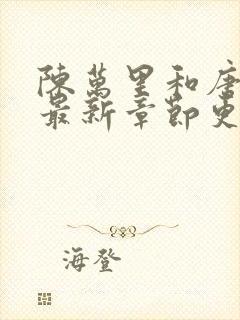 陳萬里和唐
最新章節更
海登